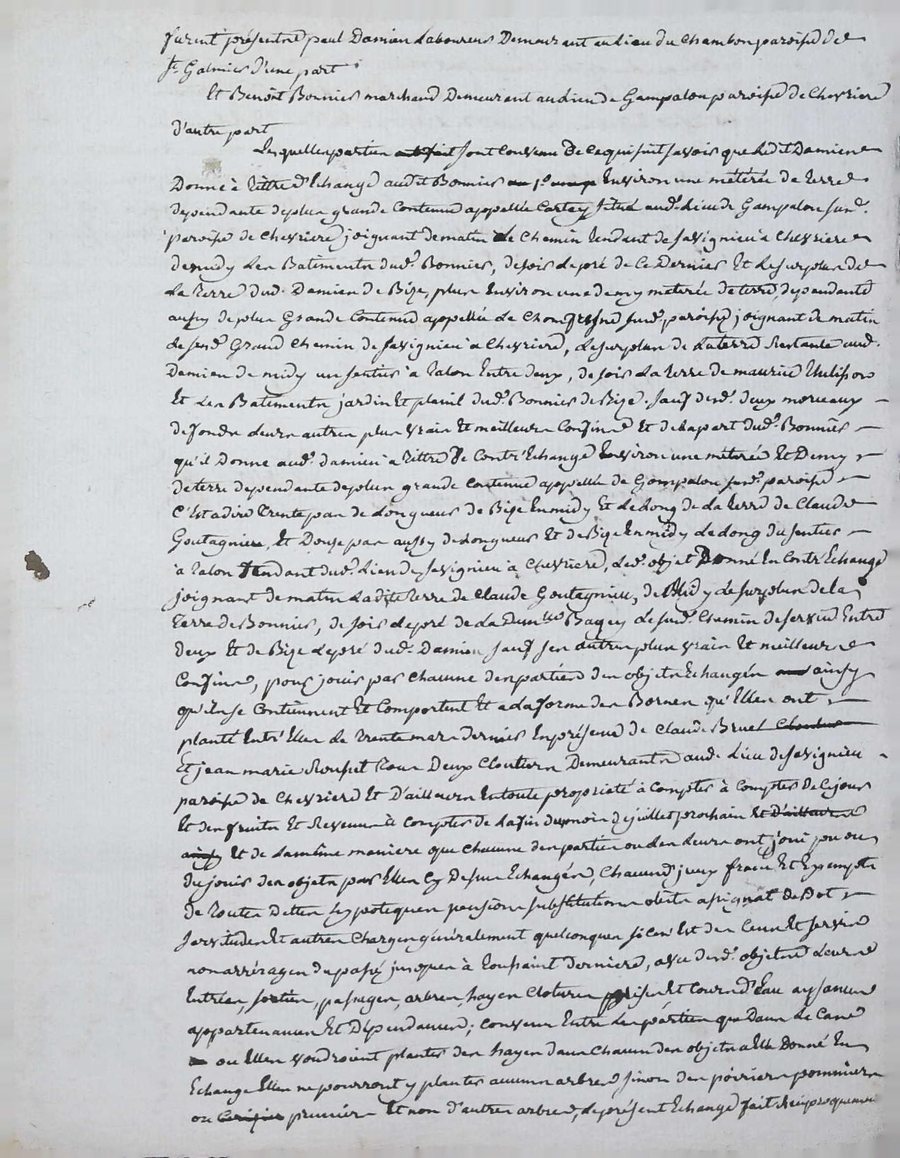 furent présents paul Damien Laboureur Demeurant au lieu du Chambon paroisse de
St. Galmier d'une part
Et Benoît Bonnier marchand Demeurant au lieu de Gampalou paroisse de Chevriere
d'autre part
Lesquelles parties sont Convenu De ce qui suit savoir que Ledit Damien
Donne à Tittre d'Echange audit Bonnier Environ une meterée de terre
dependante de plus grande Contenue appellée situé aud. Lieu de Gampalou sus d.
paroisse de Chevriere joignant de matin Le Chemin Tendant de Savignieu à Chevriere
de midy Les Batiments dud. Bonnier, de soir Le pré de Ce Dernier Et Le surplus de
La Terre dud. Damien de Bize, plus Environ une demy meterée de terre, dependante
aussy de plus Grande Contenue appellée Le sus d. paroisse, joignant de matin
Le sus d. Grand Chemin de Savignieu à Chevriere, Le surplus de La terre Restante aud.
Damien de midy un sentier à Talon Entre deux, de soir La terre de maurice
Et Les Batiments jardin Et plassil dud. Bonnier de Bize. sauf desd. deux morceaux
de fonds Leurs autres plus vrais Et meilleurs Confins Et de La part dud. Bonnier
qu'il Donne aud. damien à Tittre De Contr'Echange Environ une meterée Et Demy
de terre dependante de plus grande Contenue appellée de Gampalou sus d. paroisse
C'Est à dire Trente pas de Longueur de Bize En midy Et Le Long de La terre de Claude
Goutagnieu, Et Douze pas aussy de Longueur Et de Bize En midy Le Long du sentier
à Talon Tendant dud. Lieu de Savignieu à Chevriere, Led. objet Donné En Contr'Echange
joignant de matin Ladite terre de Claude Goutagnieu, de Midy Le surplus de La
terre de Bonnier, de soir Le pré de La Dem.lle Le sus d. Chemin de service Entre
deux Et de Bize Le pré dud. Damien sauf ses autres plus vrais Et meilleurs
Confins, pour jouir par Chacune des parties des objets Echangés ainsy
qu'ils se Contiennent Et Comportent Et à La forme des Bornes qu'Elles ont
planté Entr'Elles Le Trente mars dernier En présence de Claude Bruel
Et jean marie Tous Deux Cloutiers Demeurants aud. Lieu de Savignieu
paroisse de Chevriere Et D'ailleurs En toute propriété à Compter à Compter de Ce jour
Et des fruits Et Revenus à Compter de La fin du mois de juillet prochain Et D'ailleurs
ainsy Et de La même maniere que Chacune des parties ou Les Leurs ont joui pou ou
du jouir des objets par Elles Cy Dessus Echangés, Chacun d'jceux francs Et Exempts
de Toutes Dettes hypoteques pensions substitutions obits assignat de Dot
servitudes Et autres Charges généralement quelconques si Ce n'Est des Cens Et servis
non arréragés du passé jusques à Toussaint derniere, avec desd. objets Leurs
Entrées, sorties, passages, arbres hayes Clotures prises Et Cours d'Eau aysances
appartenances Et Dépendances; Convenu Entre Les parties que Dans Le Cas
ou Elles voudroient planter des hayes dans Chacun des objets à Elle Donné En
Echange Elles ne pourront y planter aucuns arbres, sinon des poiriers pommiers
ou Cerisiers pruniers Et non d'autres arbres, Le présent Echange fait Réciproquement